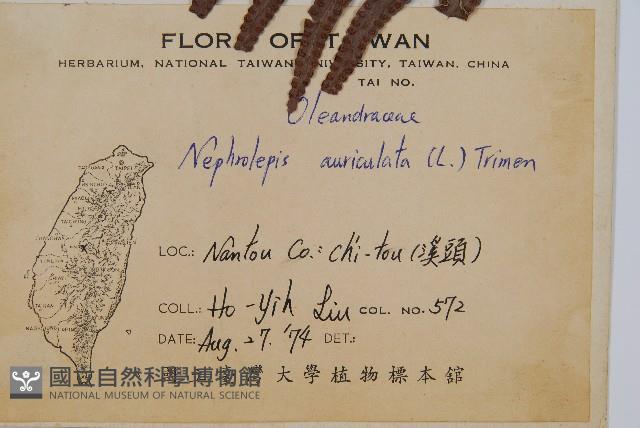 FLORA OF TAIWAN
HERBARIUM, NATIONAL TAIWAN UNIVERSITY, TAIWAN, CHINA
TAI NO.
Oleandraceae
Nephrolepis auriculata (L.) Trimen
LOC.: Nantou Co.: Chi-tou (溪頭)
COLL.: Ho-Yih Liu COL. NO. 572
DATE: Aug. 27. '74 DET.:
國立臺灣大學植物標本館
國立自然科學博物館
NATIONAL MUSEUM OF NATURAL SCIENCE